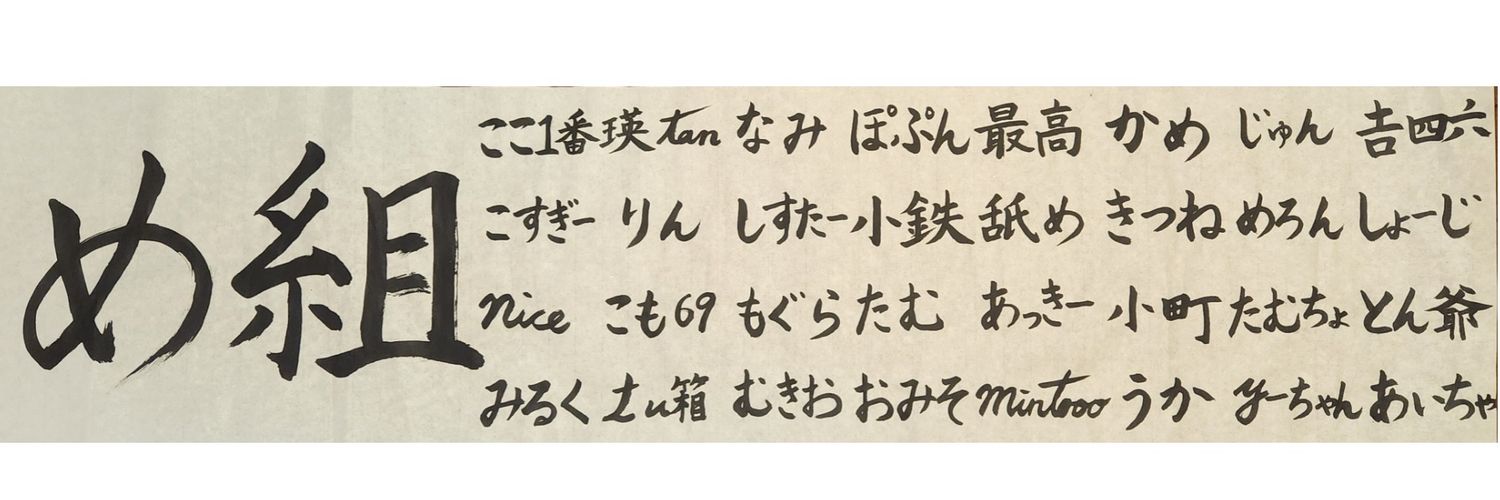 め組
ここ1番 瑛tan なみ ぽぷん 最高 かめ じゅん 吉四六
こすぎー りん しすたー 小鉄 舐め きつね めろん しょーじ
Nice こも69 もぐら たむ あっきー 小町 たむちょ とん爺
みるく 箱 むきお おみそ mintooo うか ちゃん あいちゃ